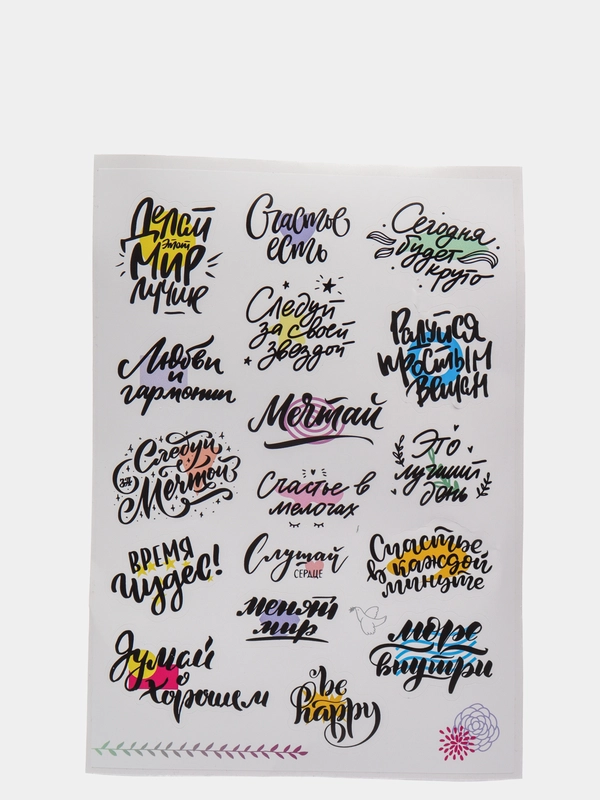 Делай
этот
Мир
лучше
Счастье
есть
Сегодня
будет
круто
Следуй
за своей
звездой
Радуйся
простым
вещам
Любви
и
гармонии
Мечтай
Это
лучший
день
Следуй
за
Мечтой
Счастье в
мелочах
ВРЕМЯ
чудес!
Слушай
СЕРДЦЕ
Счастье
в каждой
минуте
меняй
мир
море
внутри
Думай
о
хорошем
be
happy